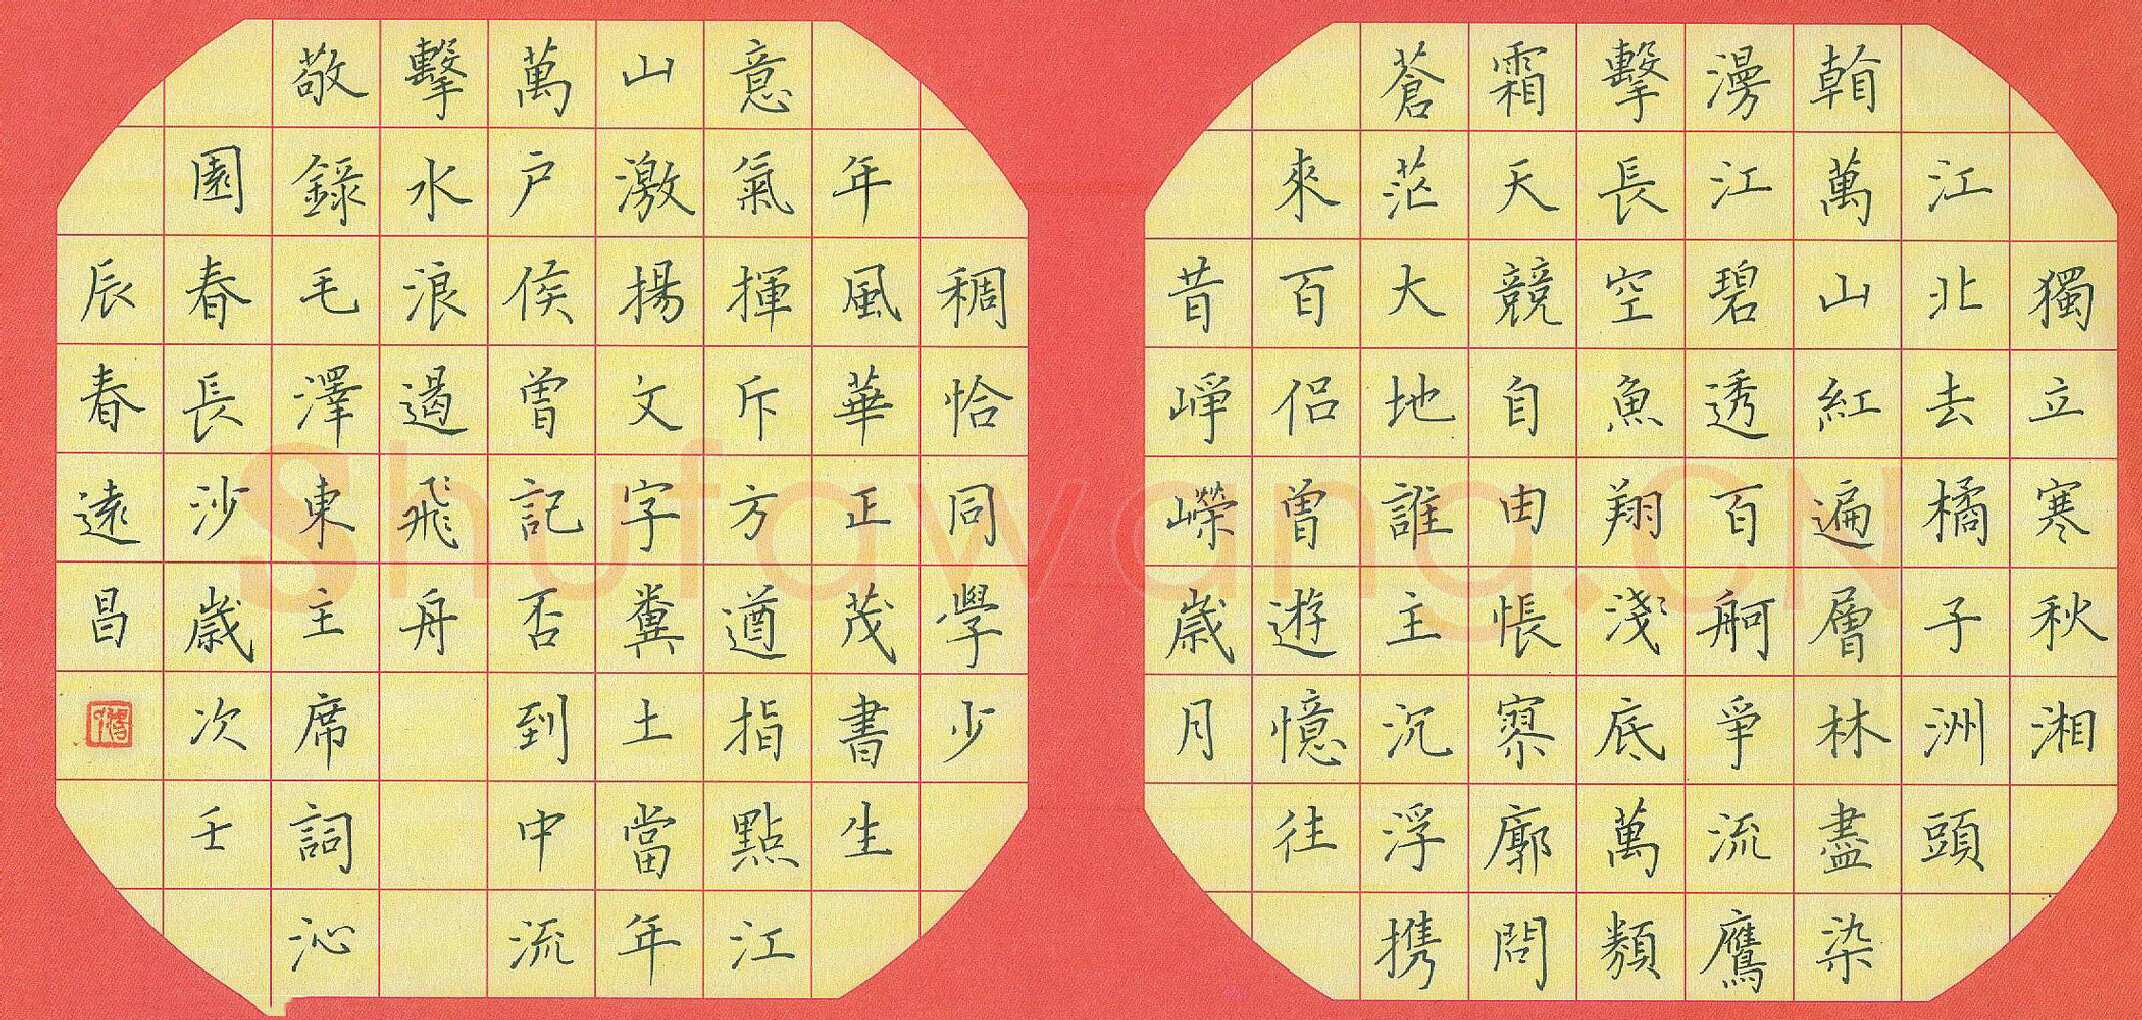 獨立寒秋湘
江北去橘子洲頭
看萬山紅遍層林盡染
漫江碧透百舸爭流鷹
擊長空魚翔淺底萬類
霜天競自由悵寥廓問
蒼茫大地誰主沉浮携
來百侶曾遊憶往
昔崢嶸歲月
稠恰同學少
年風華正茂書生
意氣揮斥方遒指點江
山激揚文字糞土當年
萬戶侯曾記否到中流
擊水浪遏飛舟
敬錄毛澤東主席詞沁
園春長沙歲次壬
辰春遠昌
Shufawang.CN